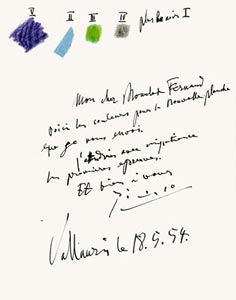 V II V IV
plus le noir I
Mon cher Mourlot Fernand
voici les couleurs pour la Nouvelle planche
que je vous envoi.
J'attends avec impatience
les premières épreuves.
Et bien à vous
Picasso
Vallauris le 18.5.54.